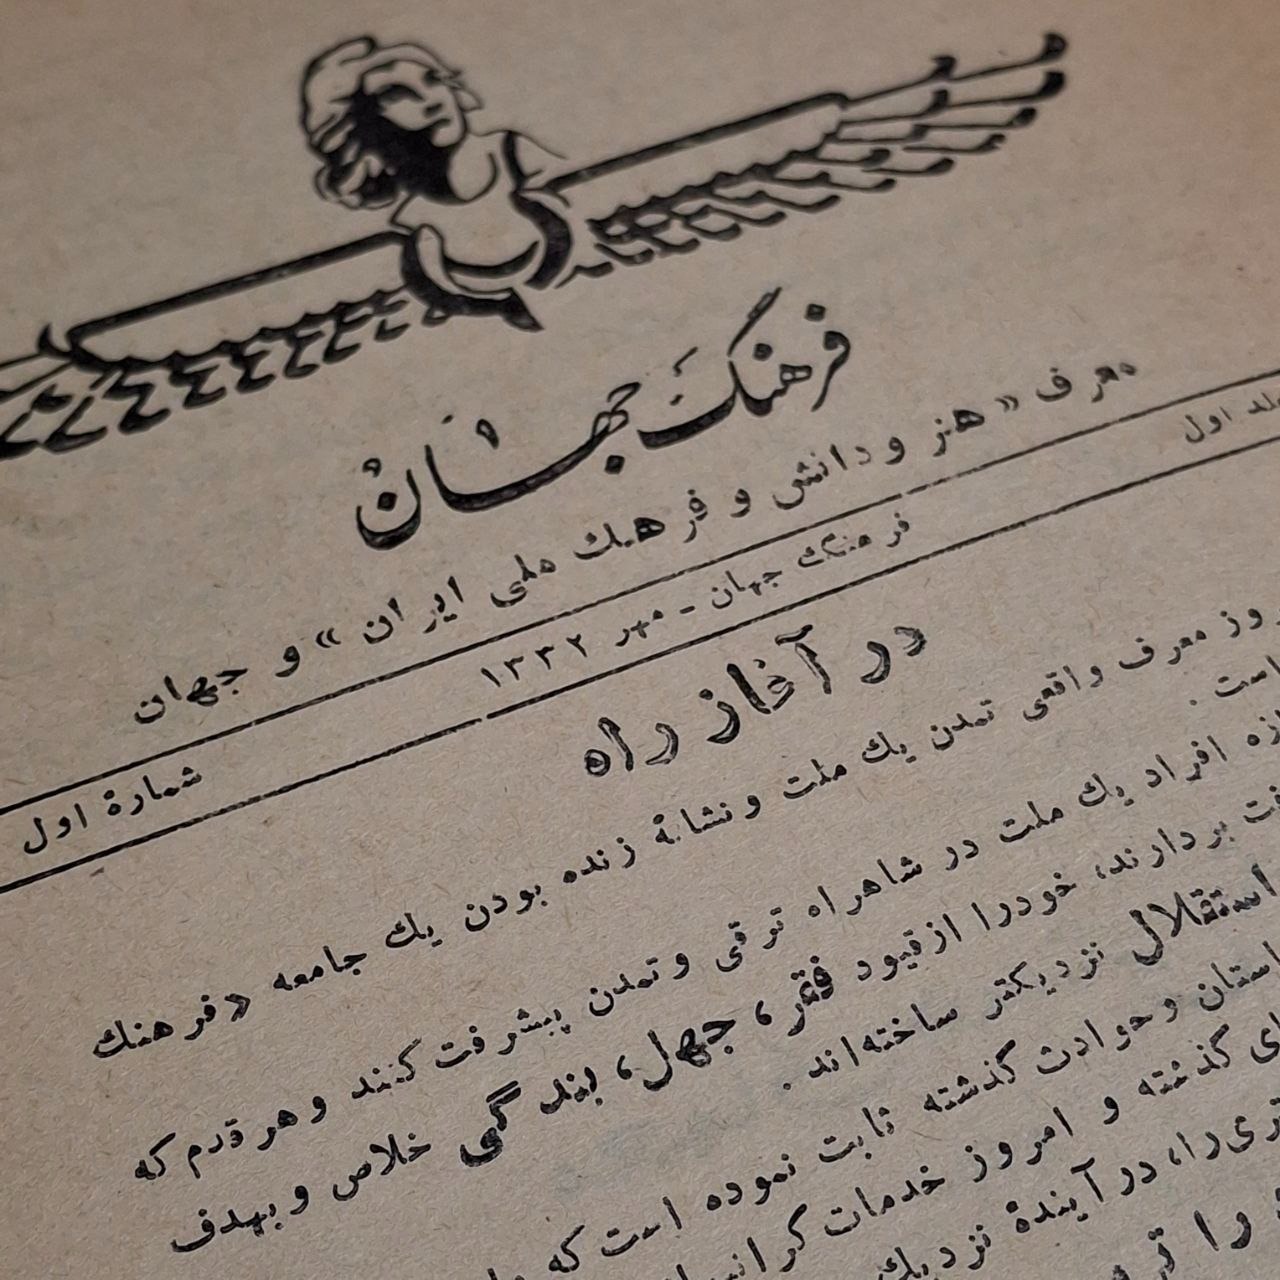 فرهنگ جهان
معرف «هنر و دانش و فرهنك ملی ایران» و جهان
اول
فرهنگ جهان - مهر ۱۳۳۲
شمارهٔ اول
در آغاز راه
معرف واقعی تمدن یك ملت و نشانهٔ زنده بودن یك جامعه «فرهنك
است .
افراد یك ملت در شاهراه ترقی و تمدن پیشرفت کنند و هر قدم که
بردارند، خودرا ازقیود فقر، جهل، بندگی خلاص و بهدف
استقلال نزدیکتر ساخته‌اند .
و حوادث گذشته ثابت نموده است که
گذشته و امروز خدمات
را، در آیندهٔ نزدیك
را